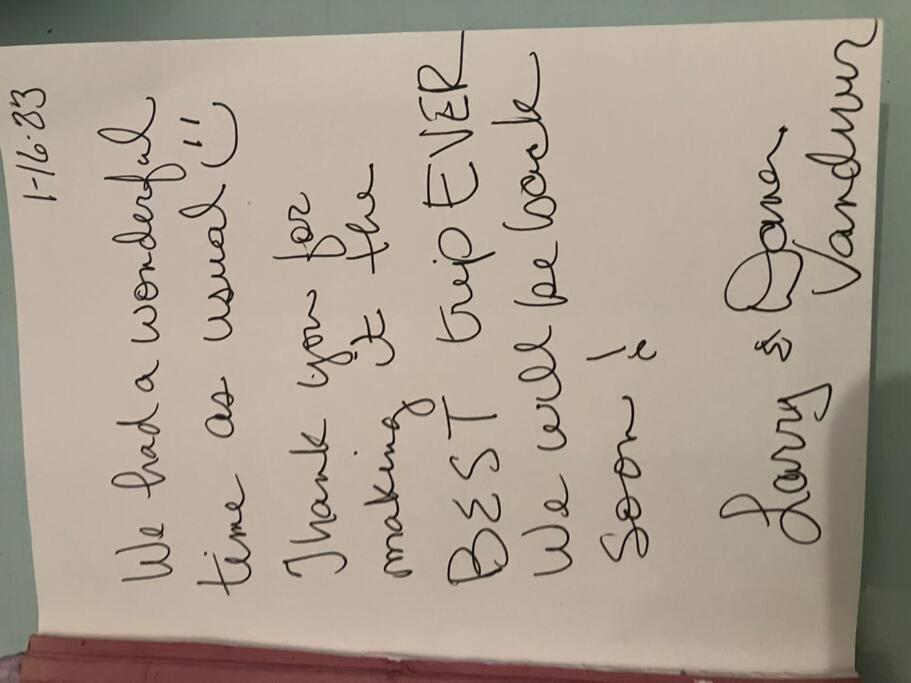 1-16-23
We had a wonderful
time as usual
Thank you for
making it the
BEST trip EVER
We will be back
Soon!
Larry &